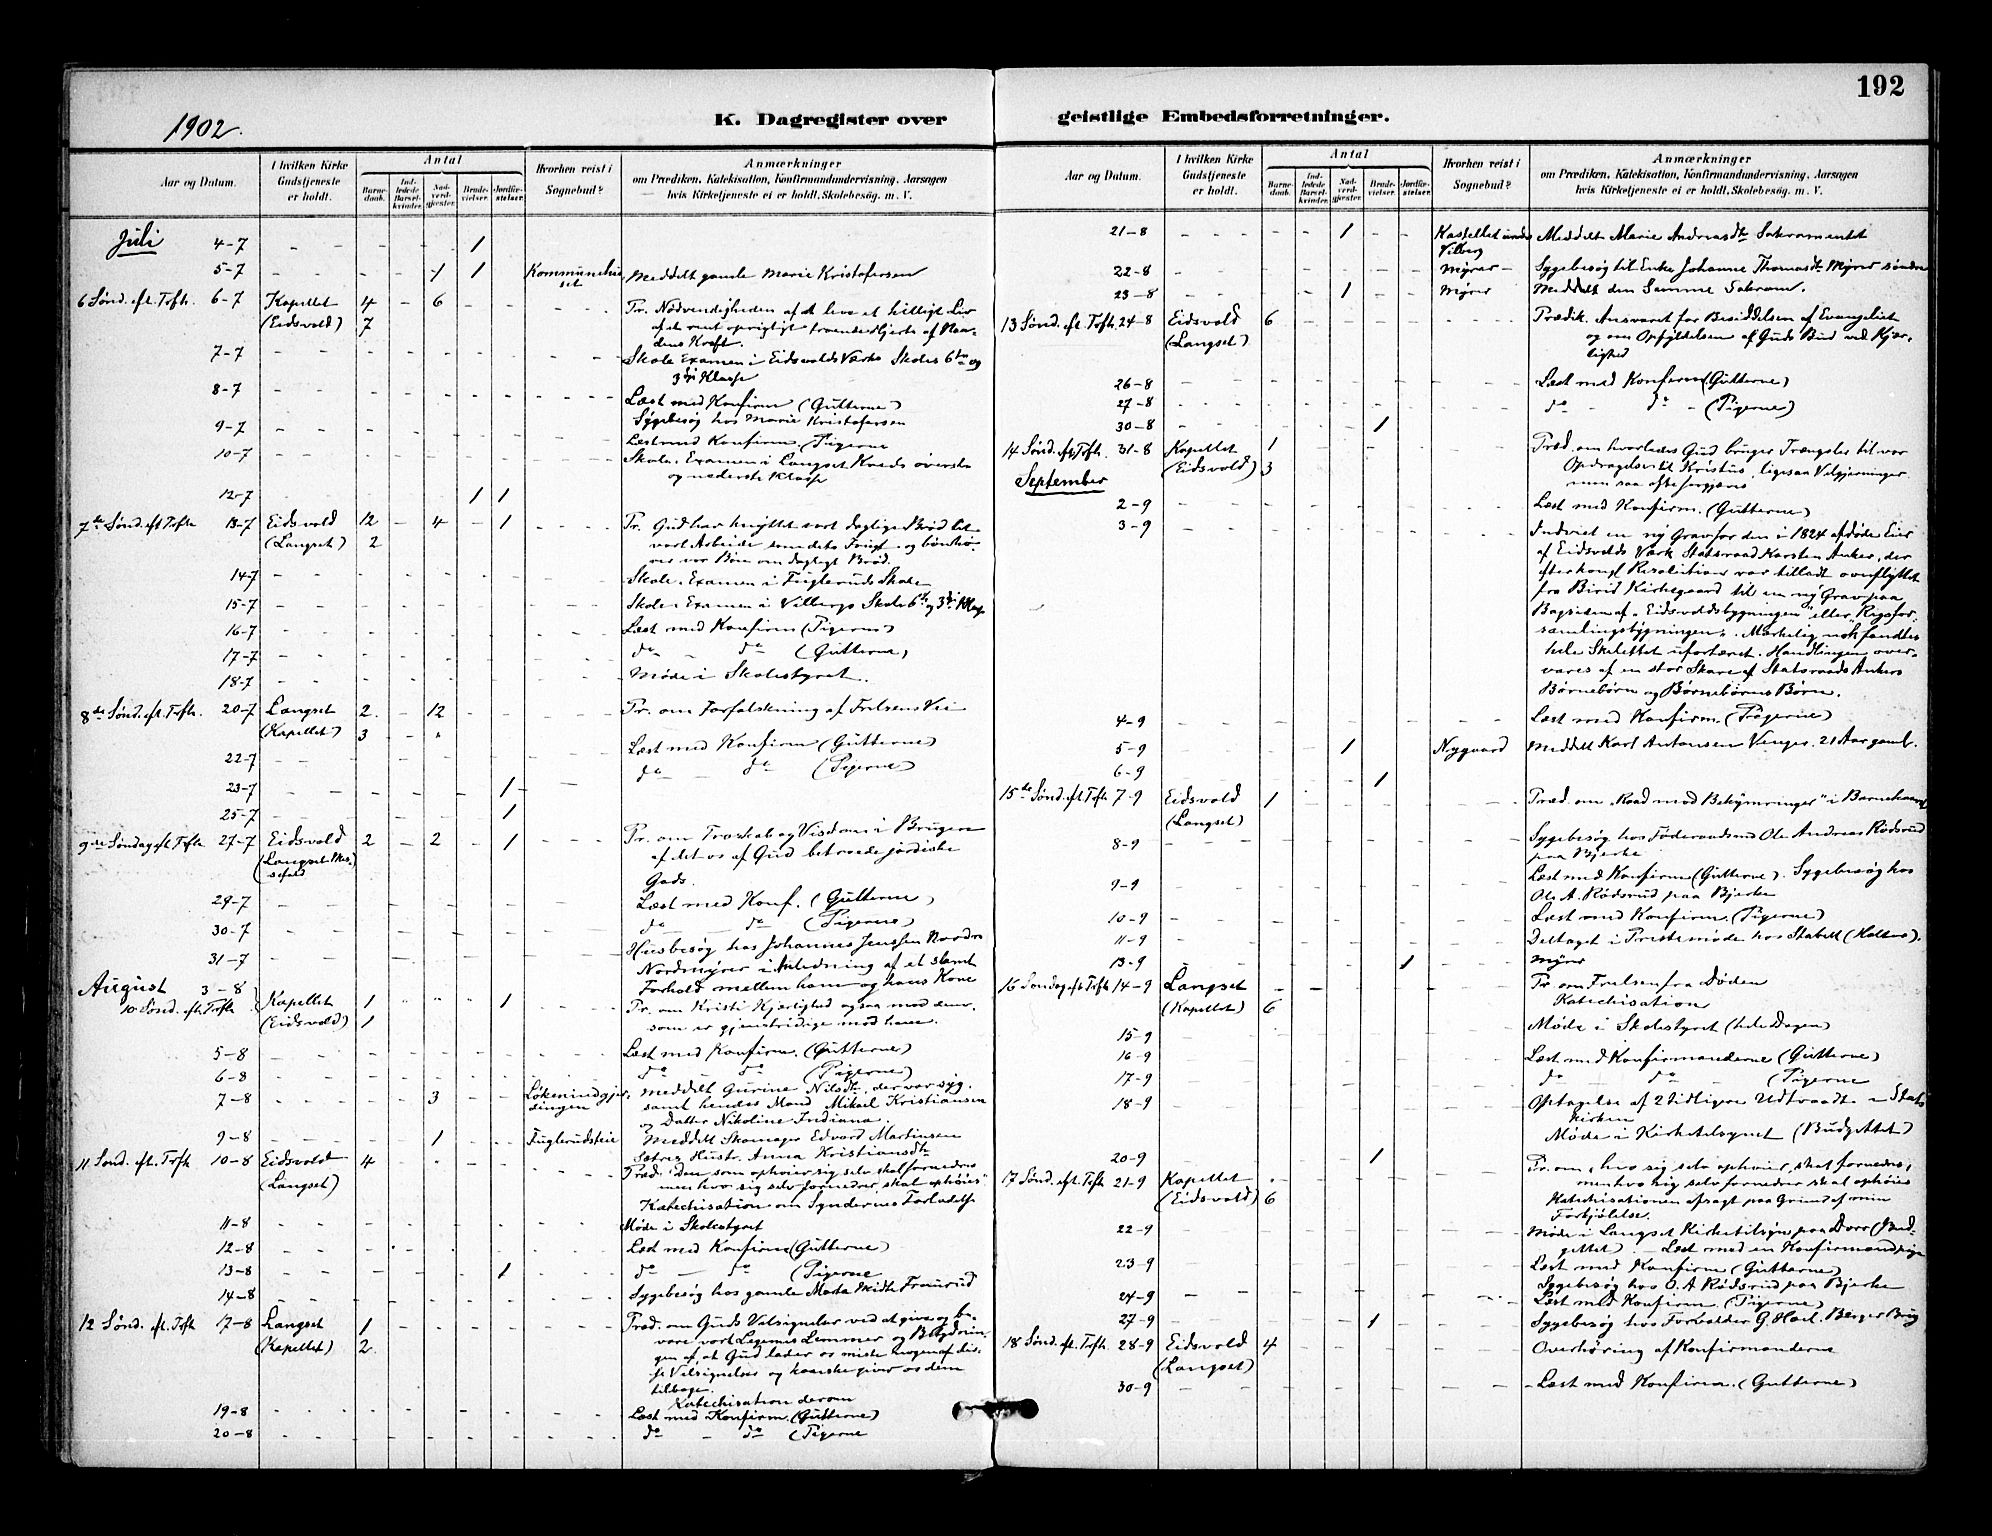 192
1902.
K. Dagregister over geistlige Embedsforretninger.
Aar og Datum.
I hvilken Kirke Gudstjeneste er holdt.
Antal
Barnedaab.
Indledede Barselkvinder.
Nadverdgjester.
Brudevielser.
Jordfæstelser.
Hvorhen reist i Sognebud?
Anmærkninger
om Prædiken, Katekisation, Konfirmandundervisning, Aarsagen
hvis Kirketjeneste ei er holdt, Skolebesøg. m. V.
Juli 4-7 - - - - 1
5-7 - - - 1 1 Kommunehuset Meddelt gamle Marie Kristofersen
6 Sønd. eft. Trfh. 6-7 Kapellet 4 - 6 Pr. Nødvendigheden af at leve et helligt Liv
(Eidsvold) 7 af et rent oprigtigt troende Hjerte af Naadens Kraft.
7-7 Skole Examen i Eidsvolds Værks Skoles 6te og
3die Klasse
8-7 Læst med Konfirm (Gutterne)
Sygebesøg hos Marie Kristofersen
9-7 Læst med Konfirm. Pigerne
10-7 Skole. Examen i Langset Kreds øverste
og nederste Klasse
12-7 1 1
7de Sønd. eft Trfh 13-7 Eidsvold 12 - 4 - 1 Pr. Gud har knyttet vort daglige Brød til
(Langset) 2 vort Arbeide som dets Frugt og bønhører vor Bøn om dagligt Brød.
14-7 Skole. Examen i Fuglerud Skole
15-7 Skole. Examen i Vilbergs Skole 6te og 3die Klasse
16-7 Læst med Konfirm (Pigerne)
17-7 do do (Gutterne)
18-7 Møde i Skolestyret.
8de Sønd. eft. Trfh. 20-7 Langset 2 - 12 Pr. om Forfalskning af Frelsens Vei
(Kapellet) 3
22-7 Læst med Konfirm (Gutterne)
do do (Pigerne)
23-7 1
25-7 1
9de Søndag eft Trfh 27-7 Eidsvold 2 - 2 - 1 Pr. om Troskab og Visdom i Brugen
(Langset Messefald) af det os af Gud betroede jordiske
Gods.
29-7 Læst med Konf. (Gutterne)
30-7 do do (Pigerne)
31-7 Husbesøg hos Johannes Jenssen Nordre
Nordmyrer i Anledning af et slemt
Forhold mellem ham og hans Kone
August 3-8
10 Sønd. eft. Trfh Kapellet 1 1 Pr. om Kristi Kjærlighed ogsaa mod dem,
(Eidsvold) 1 som er gjenstridige mod ham.
5-8 Læst med Konfirm. (Gutterne)
6-8 do do (Pigerne)
7-8 3 Meddelt Gurine Nilsdtr. der var syg.
samt hendes Mand Mikael Kristiansen
og Datter Nikoline Frediana.
9-8 1 Fuglerudsteie Meddelt Skomager Edvard Martinsen
Sætres Hustr. Anna Kristiansdtr
11 Sønd. eft. Trfh 10-8 Eidsvold 4 Præd. "Den som ophøier sig selv skal fornedres
(Langset) men hvo sig selv fornedrer, skal ophøies"
Katechisation om Syndernes Forladelse
11-8 Møde i Skolestyret
12-8 Læst med Konfirm (Gutterne)
13-8 1 do do (Pigerne
14-8 Sygebesøg hos gamle
12 Sønd. eft. Trfh 17-8 Langset 1 Præd. om Guds Velsignelser ved at give og bevare vort Legemes Lemmer og
(Kapellet) 2 af, at Gud lader os miste nogen af disse Velsignelser og kanske giver os dem
tilbage.
Katechisation derom
19-8 Læst med Konfirm. (Gutterne)
20-8 do - do (Pigerne
Aar og Datum.
I hvilken Kirke Gudstjeneste er holdt.
Antal
Barnedaab.
Indledede Barselkvinder.
Nadverdgjester.
Brudevielser.
Jordfæstelser.
Hvorhen reist i Sognebud?
Anmærkninger
om Prædiken, Katekisation, Konfirmandundervisning, Aarsagen
hvis Kirketjeneste ei er holdt, Skolebesøg. m. V.
21-8 1 Kastellet under Vilberg Meddelt Marie Andreasdtr Sakramentet
22-8 Myrer Sygebesøg til Enke Johanne Thomasdtr Myrer søndre
23-8 1 Myrer Meddelt den Samme Sakram.
13 Sønd. eft. Trfh. 24-8 Eidsvold 6 Prædik. Ansvaret for Besiddelsen af Evangeliet
(Langset) og om Opfyldelsen af Guds Bud ved Kjærlighed
26-8 Læst med Konfirm (Gutterne)
27-8 do - do - (Pigerne)
30-8 1
14 Sønd. eft. Trfh. 31-8 Kapellet 1 Præd. om hvorledes Gud bruger Trængsler til vor
(Eidsvold) 3 Opdragelse til Kristus, ligesaa Velgjerninger
men saa ofte forgjæves
September
2-9 Læst med Konfirm. (Gutterne)
3-9 Indviet en ny Grav for den i 1824 afdøde Eier
af Eidsvolds Værk Statsraad Karsten Anker, der
efter kongl Resolution var tilladt overflyttet
fra Birid Kirkegaard til en ny Grav paa
Bagsiden af "Eidsvoldsbygningen" eller "Rigsforsamlingsbygningen". Mærkelig nok fandtes
hele Skelettet ufortæret. Handlingen overvares af en stor Skare af Statsraad Ankers
Børnebørn og Børnebørns Børn.
4-9 Læst med Konfirm. (Pigerne)
5-9 1 Nygaard Meddelt Karl Antonsen Venger. 21 Aar gaml.
6-9 1
15de Sønd. eft Trfh 7-9 Eidsvold 1 Præd. om "Raad mod Bekymringer" i Barnekaar
(Langset)
8-9 Sygebesøg hos Føderaadsmd Ole Andreas Rødsrud
paa Bjerke
9-9 Læst med Konfirm (Gutterne). Sygebesøg hos
Ole A. Rødsrud paa Bjerke
10-9 Læst med Konfirm. (Pigerne)
11-9 Deltaget i Prestemøde hos Stabell (Holter).
13-9 1 Myrer
16 Søndag eft Trfh 14-9 Langset Pr. om Frelsen fra Døden
(Kapellet) 6 Katechisation
15-9 Møde i Skolestyret (hele Dagen)
16-9 Læst med Konfirmanderne (Gutterne)
17-9 do do (Pigerne
18-9 Optagelse af 2 tidligere Udtraadte i Statskirken
Møde i Kirketilsynet (Budgettet)
20-9 1
17 Sønd. eft. Trfh 21-9 Kapellet Pr. om, hvo sig selv ophøier, skal fornedres,
(Eidsvold) 6 men hvo sig selv fornedrer skal ophøies
Katechisationen afsagt paa Grund af min
Forkjølelse.
22-9 Møde i Langset Kirketilsyn paa Dorr (Budgettet). - Læst med en Konfirmandpige
23-9 Læst med Konfirm (Gutterne)
Sygebesøg hos O. A. Rødsrud paa Bjerke
24-9 Læst med Konfirm. (Pigerne)
27-9 1 Sygebesøg hos Forvalter G.
18 Sønd. eft. Trfh 28-9 Eidsvold 4 Overhøring af Konfirmanderne
(Langset)
30-9 Læst med Konfirm. (Gutterne)